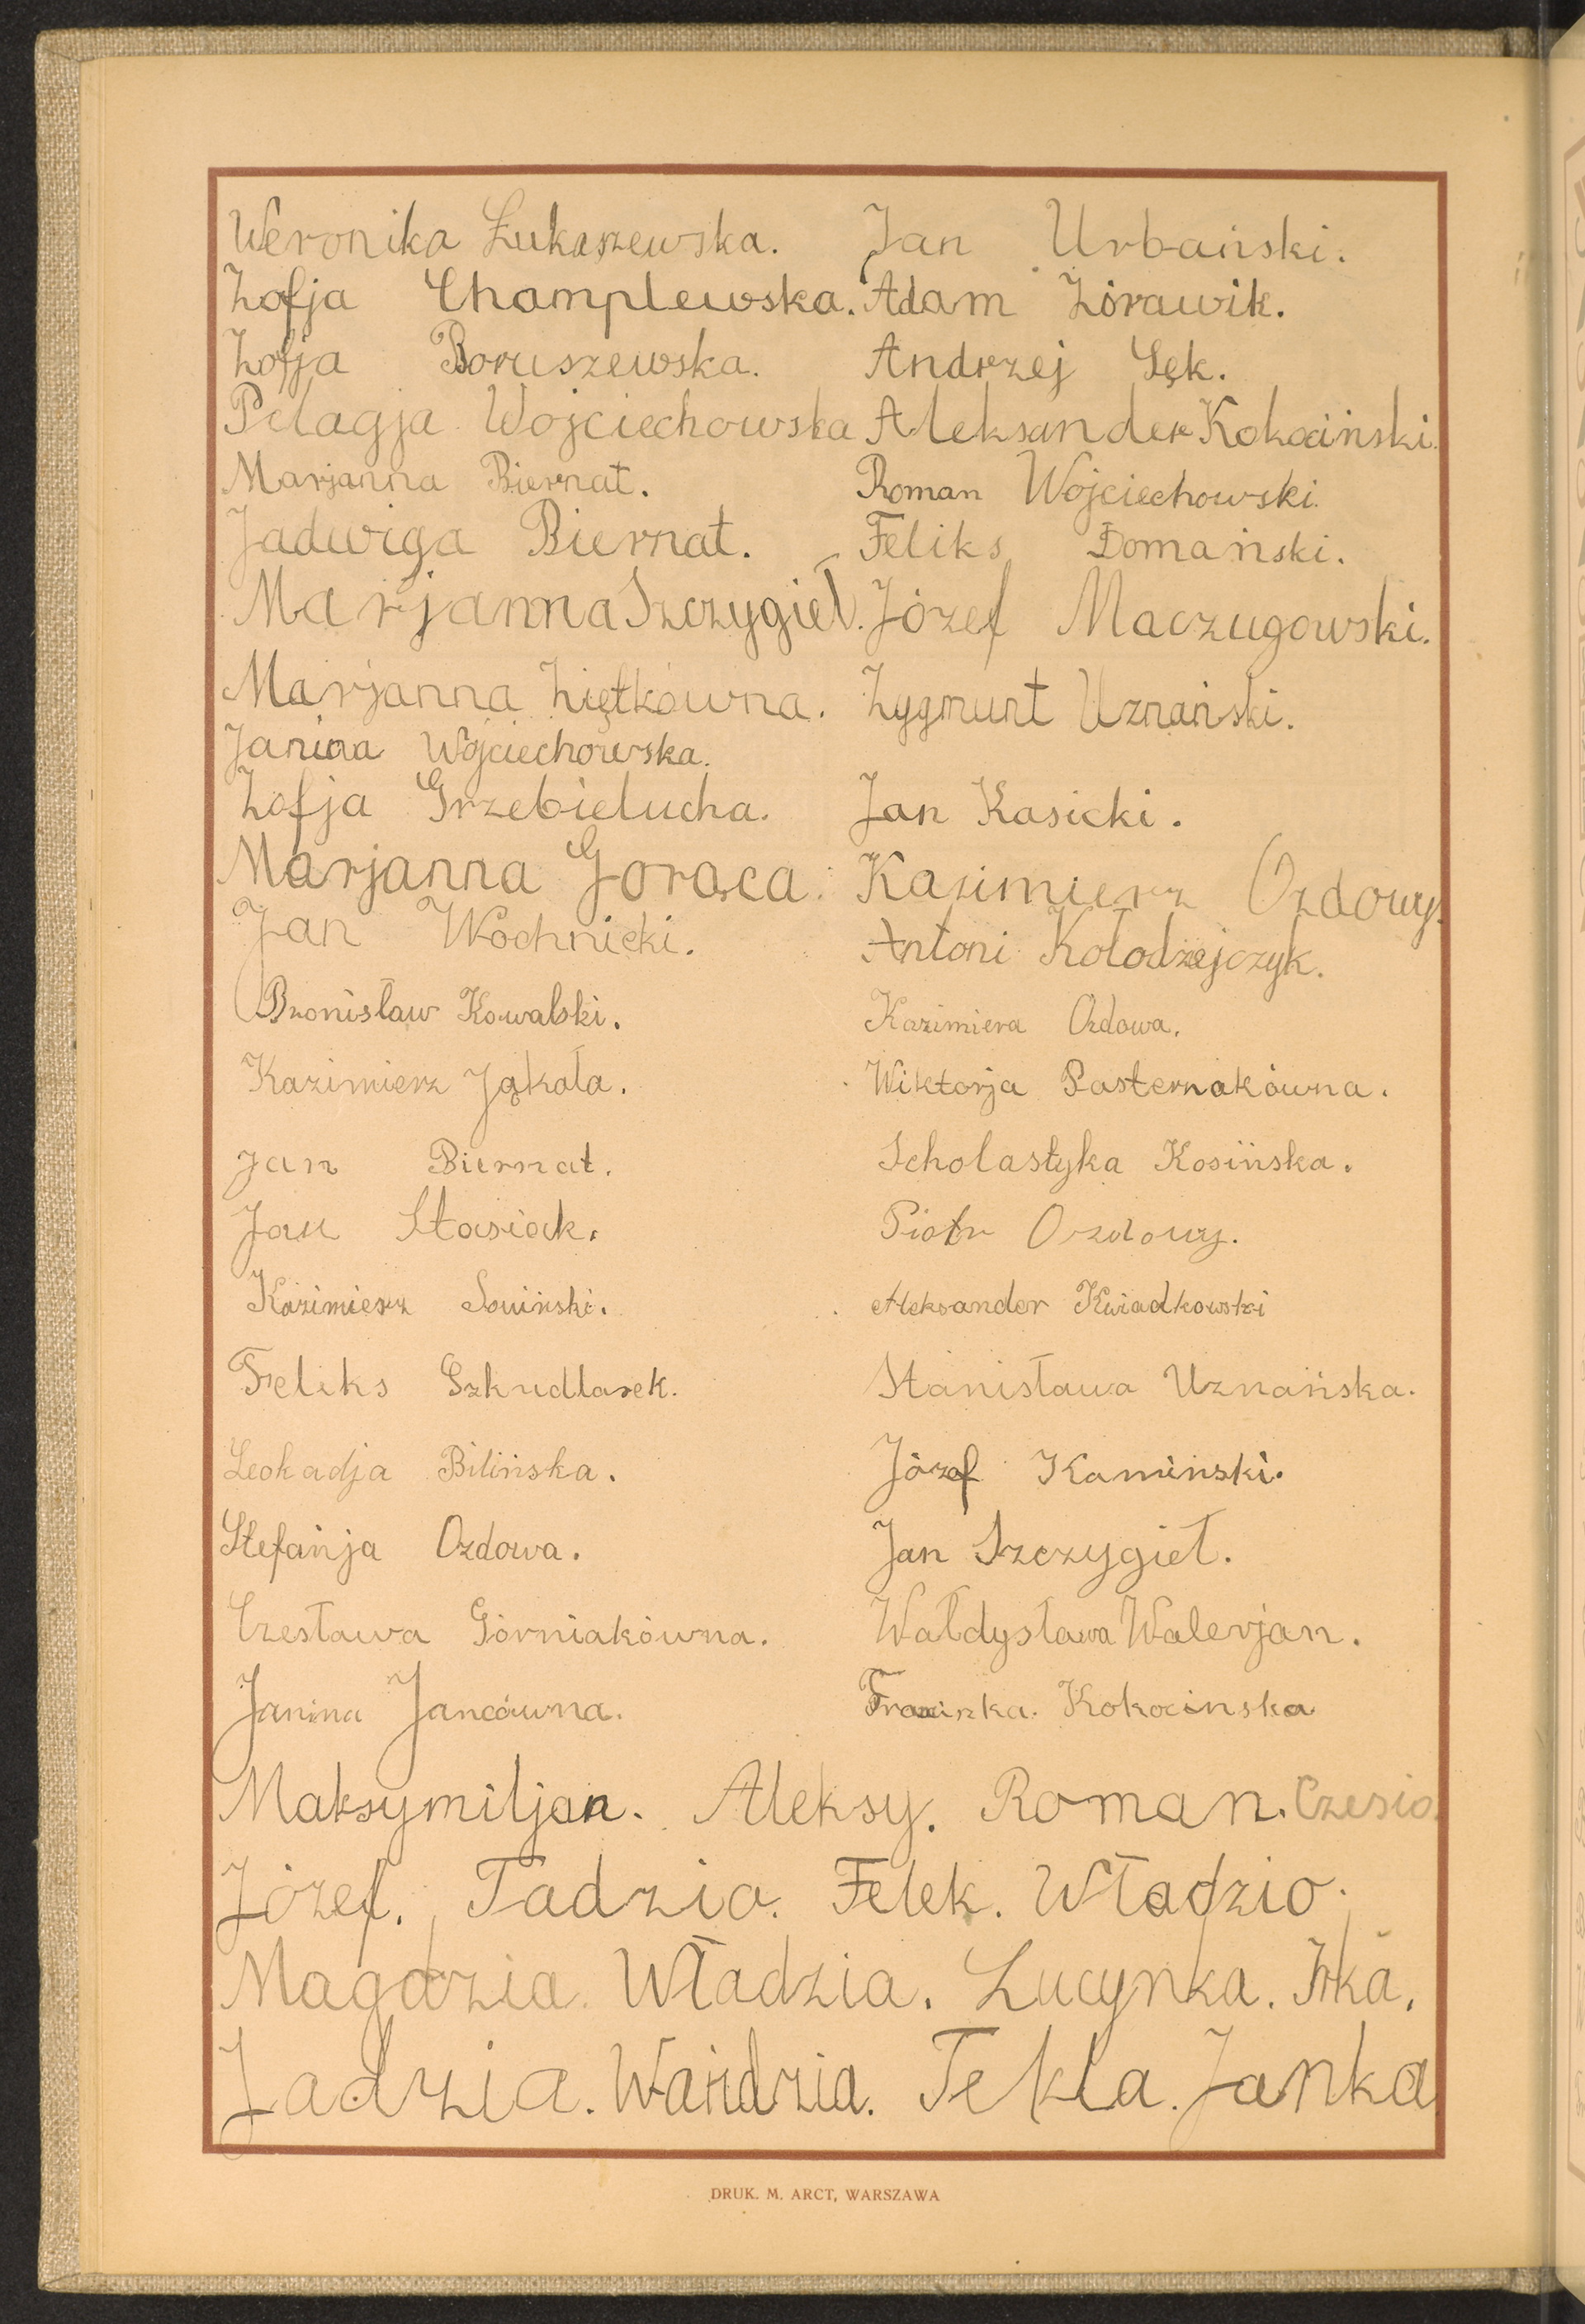 Weronika Łukaszewska. Jan Urbański.
Zofja Champlewska. Adam Żórawik.
Zofja Boruszewska. Andrzej Sęk.
Pelagja Wojciechowska Aleksander Kokociński.
Marjanna Biernat. Roman Wojciechowski.
Jadwiga Biernat. Feliks Domański.
Marjanna Szczygieł. Józef Maczugowski.
Marjanna Ziętkówna. Zygmunt Uznański.
Janina Wojciechowska.
Zofja Grzebielucha. Jan Kasicki.
Marjanna Gorąca. Kazimierz Ozdowy.
Jan Wochnicki. Antoni Kołodziejczyk.
Bronisław Kowalski. Kazimiera Ozdowa.
Kazimierz Jąkała. Wiktorja Pasternakówna.
Jan Biernat. Scholastyka Kosińska.
Jan Stasiak. Piotr Ozdowy.
Kazimierz Sowiński. Aleksander Kwiadkowski
Feliks Szkudlarek. Stanisława Uznańska.
Leokadja Bilińska. Józef Kamiński.
Stefańja Ozdowa. Jan Szczygieł.
Czesława Górniakówna. Wałdysława Walerjan.
Janina Jancówna. Kokocinska
Maksymiljan. Aleksy. Roman. Czesio.
Józef. Tadzio. Felek. Władzio.
Magdzia. Władzia. Lucynka. Irka.
Jadzia. Wańdzia. Tekla. Janka
DRUK. M. ARCT, WARSZAWA